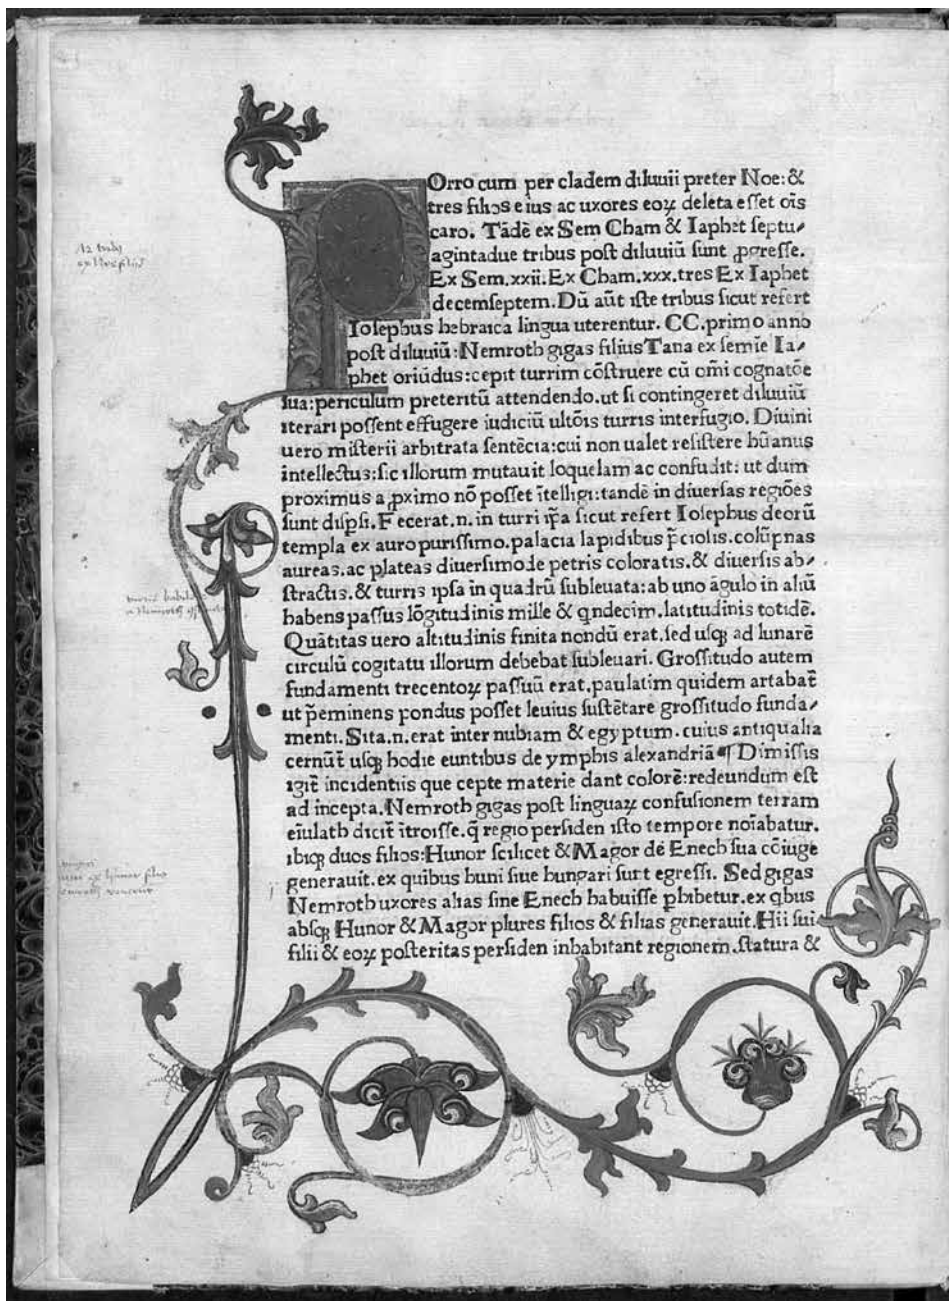 POrro cum per cladem diluuii preter Noe: &
tres filios eius ac uxores eoꝝ deleta esset oīs
caro. Tādē ex Sem Cham & Iaphet septu⸗
agintadue tribus post diluuiū sunt ꝓgresse.
Ex Sem.xxii. Ex Cham.xxx.tres Ex Iaphet
decemseptem. Dū aūt iste tribus sicut refert
Iosephus hebraica lingua uterentur. CC.primo anno
post diluuiū: Nemroth gigas filius Tana ex semīe Ia⸗
phet oriūdus: cepit turrim cōstruere cū om̄i cognatōe
sua: periculum preteritū attendendo. ut si contingeret diluuiū
iterari possent effugere iudiciū ultōis turris interfugio. Diuini
uero misterii arbitrata sentēcia: cui non ualet resistere hūanus
intellectus: sic illorum mutauit loquelam ac confudit: ut dum
proximus a ꝓximo nō posset ītelligi: tandē in diuersas regiōes
sunt disp̱si. Fecerat.n. in turri ip̄a sicut refert Iosephus deorū
templa ex auro purissimo. palacia lapidibus p̄ciolis. colūpnas
aureas. ac plateas diuersimode petris coloratis. & diuersis ab⸗
stractis. & turris ipsa in quadrū subleuata: ab uno āgulo in aliū
habens passus lōgitudinis mille & qndecim. latitudinis totidē.
Quātitas uero altitudinis finita nondū erat. sed usqꝫ ad lunarē
circulū cogitatu illorum debebat subleuari. Grossitudo autem
fundamenti trecentoꝝ passuū erat. paulatim quidem artabat̄
ut p̄eminens pondus posset leuius sustētare grossitudo funda⸗
menti. Sita.n. erat inter nubiam & egyptum. cuius antiqualia
cernūt̄ usqꝫ hodie euntibus de ymphis alexandriā ¶ Dimissis
igit̄ incidentiis que cepte materie dant colorē: redeundum est
ad incepta. Nemroth gigas post linguaꝝ confusionem terram
eiulath dicit̄ ītroisse. q̄ regio persiden isto tempore noīabatur.
ibiqꝫ duos filios: Hunor scilicet & Magor de Enech sua cōiuge
generauit. ex quibus huni siue hungari surt egressi. Sed gigas
Nemroth uxores alias sine Enech habuisse ꝑhibetur. ex qbus
absqꝫ Hunor & Magor plures filios & filias generauit. Hii sui
filii & eoꝝ posteritas persiden inhabitant regionem. statura &